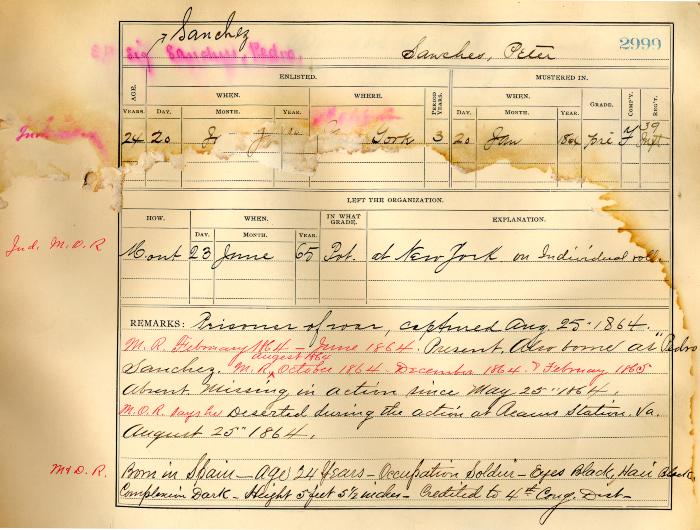 Sanchez
2999
Sanches, Peter
ENLISTED. MUSTERED IN.
AGE. WHEN. WHERE. PERIOD YEARS. WHEN. GRADE. COMP'Y. REG'T.
YEARS. DAY. MONTH. YEAR. DAY. MONTH. YEAR.
24 20 York 3 20 Jan 1864 pri F 39 Inft
LEFT THE ORGANIZATION.
HOW. WHEN. IN WHAT GRADE. EXPLANATION.
DAY. MONTH. YEAR.
Ind. M.O.R M out 23 June 65 Pvt. at New York on Individual roll.
REMARKS: Prisoner of war, captured Aug. 25" 1864.
M.R. February 1864 – June 1864. Present. Also borne as "Pedro
August 1864
Sanchez. M.R. October 1864. December 1864. & February 1865
Absent. Missing in action since May 25" 1864.
M.O.R. says he Deserted during the action at Reams Station. Va.
August 25" 1864.
M & D. R. Born in Spain – Age 24 Years – Occupation Soldier – Eyes Black, Hair Black,
Complexion Dark – Height 5 feet 5 1/2 inches – Credited to 4th Cong. Dist –